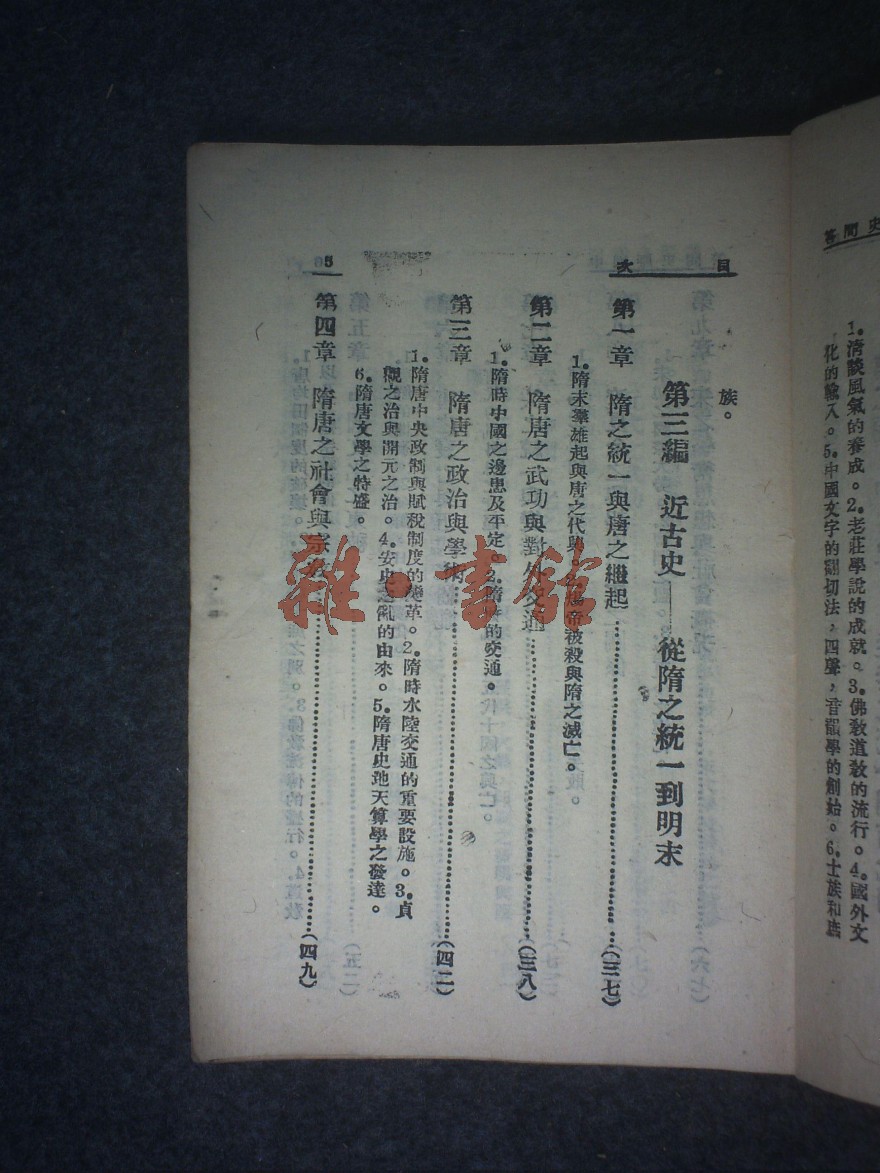 史問答
1.清談風氣的養成。2.老莊學說的成就。3.佛敎道敎的流行。4.國外文
化的輸入。5.中國文字的翻切法，四聲，音韻學的創始。6.士族和庶
目次
5
族。
第三編 近古史——從隋之統一到明末
第一章 隋之統一與唐之繼起……(三七)
1.隋末羣雄起與唐之代興。2.煬帝被殺與隋之滅亡。
第二章 隋唐之武功與對外交通……(三八)
1.隋時中國之邊患及平定。2.隋時的交通。
第三章 隋唐之政治與學術……(四二)
1.隋唐中央政制與賦稅制度的變革。2.隋時水陸交通的重要設施。3.貞
觀之治與開元之治。4.安史之亂的由來。5.隋唐史地天算學之發達。
6.隋唐文學之特盛。
第四章 隋唐之社會與宗敎……(四九)
雜·書館